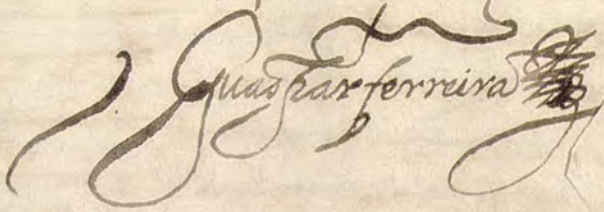 Guaspar ferreira